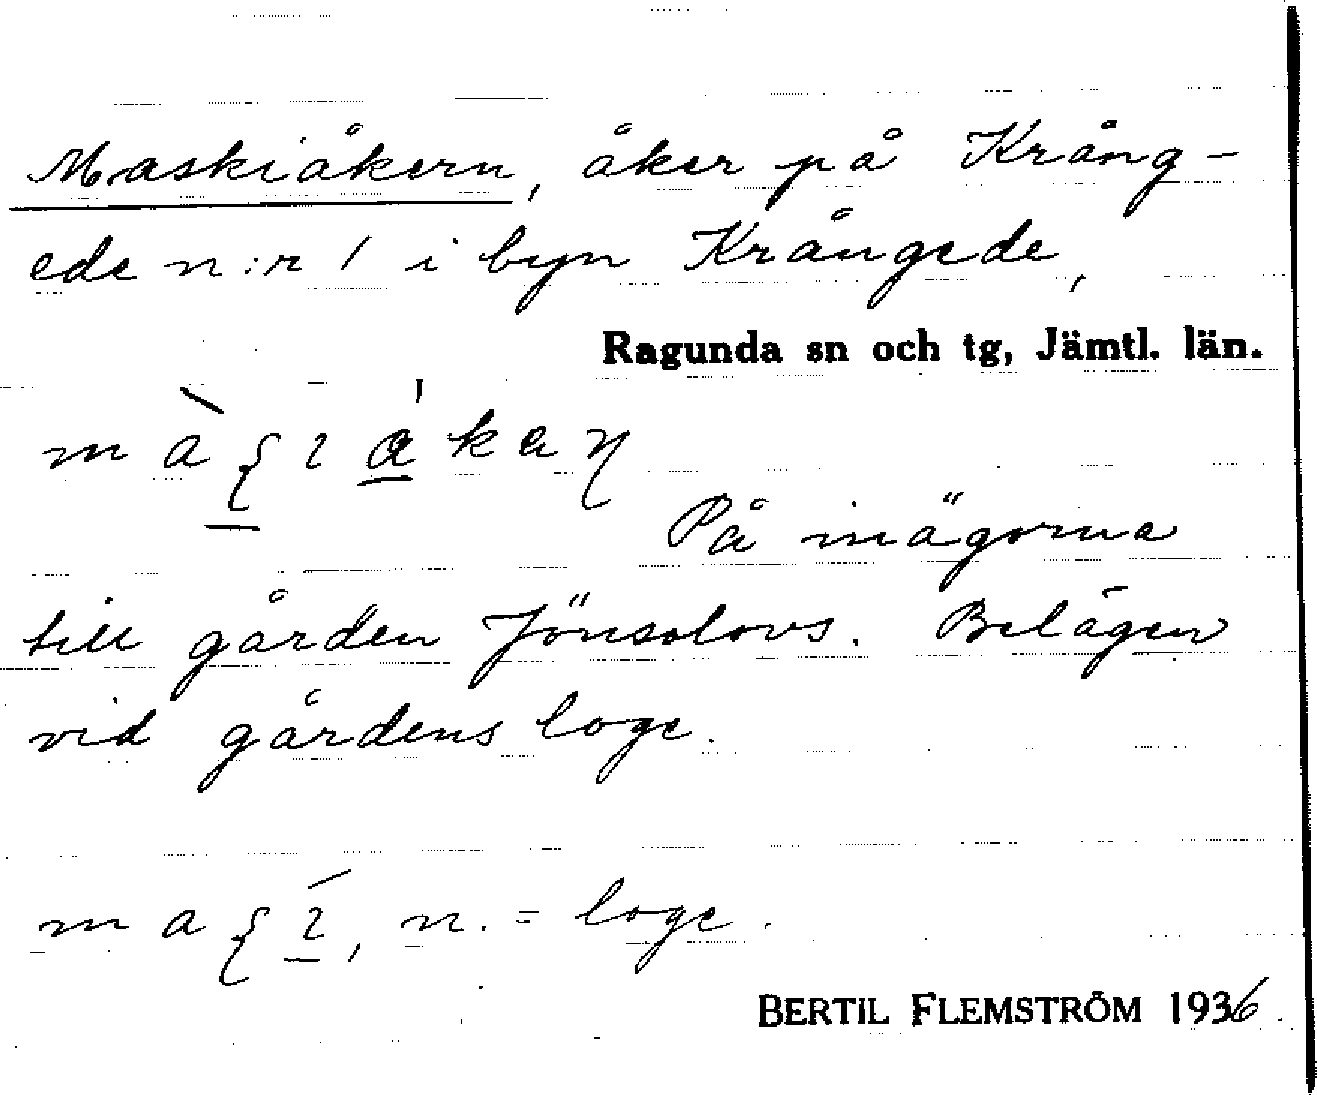 Maskiåkern, åker på Kräng-
ede n:r 1 i byn Krångede,
Ragunda sn och tg, Jämtl. län.
På inägorna
till gården Jönsolovs. Belägen
vid gårdens loge.
n. = loge.
BERTIL FLEMSTRÖM 1936.